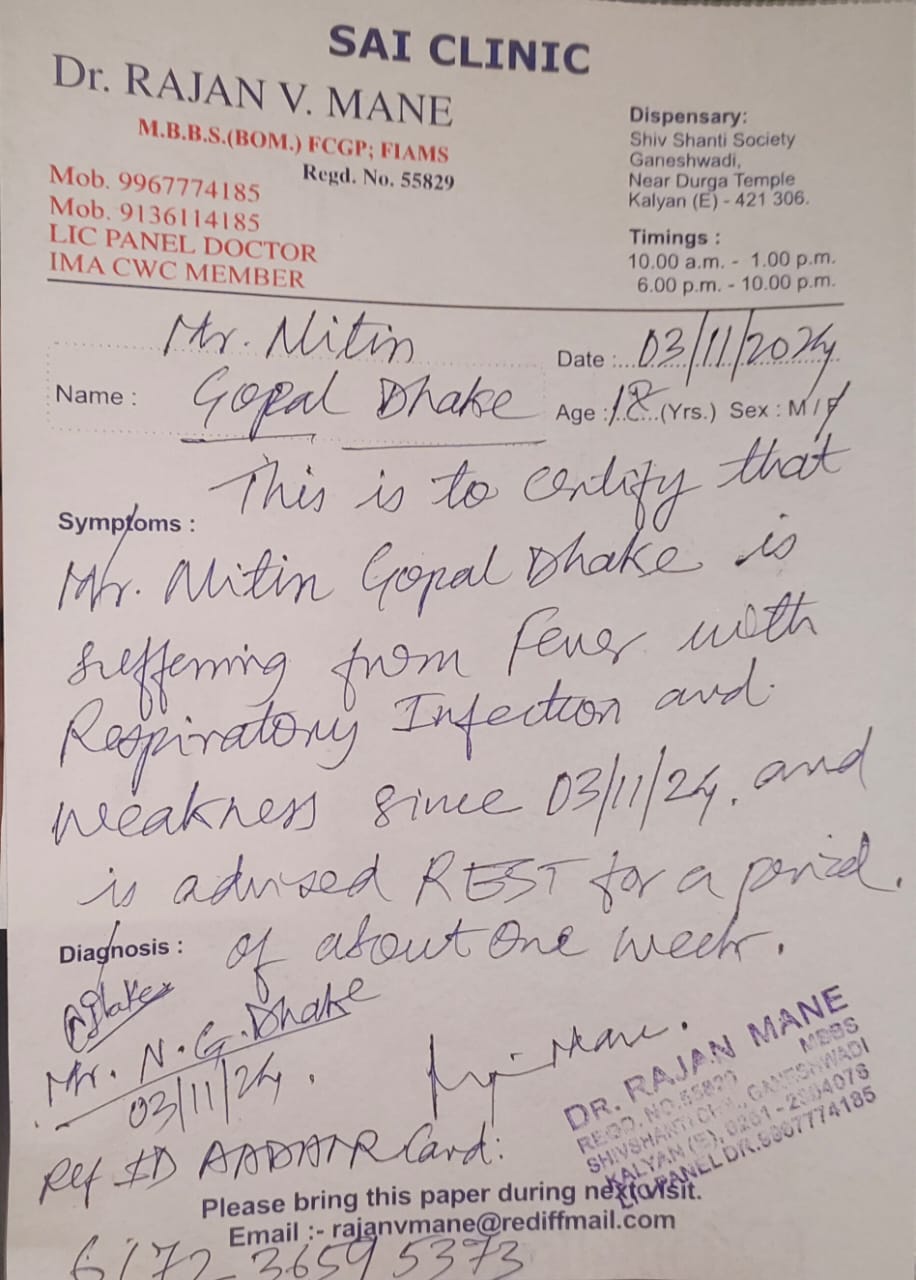 SAI CLINIC
Dr. RAJAN V. MANE
M.B.B.S.(BOM.) FCGP; FIAMS
Regd. No. 55829
Mob. 9967774185
Mob. 9136114185
LIC PANEL DOCTOR
IMA CWC MEMBER
Dispensary:
Shiv Shanti Society
Ganeshwadi,
Near Durga Temple
Kalyan (E) - 421 306.
Timings :
10.00 a.m. - 1.00 p.m.
6.00 p.m. - 10.00 p.m.
Mr. Nitin
Date : 03/11/2024
Name : Gopal Dhake
Age : 18 (Yrs.) Sex : M / F
This is to certify that
Symptoms :
Mr. Nitin Gopal Dhake is
suffering from Fever with
Respiratory Infection and
weakness since 03/11/24. and
is advised REST for a period
Diagnosis : of about One week.
Mr. N. G. Dhake
03/11/24.
Mane.
DR. RAJAN MANE
MBBS
REGD. NO. 55829
SHIVSHANTI GANESHWADI
KALYAN (E),
LIC PANEL DR. 9967774185
Ref ID AADHAR Card:
Please bring this paper during next visit.
Email :- rajanvmane@rediffmail.com
6172 3659 5373